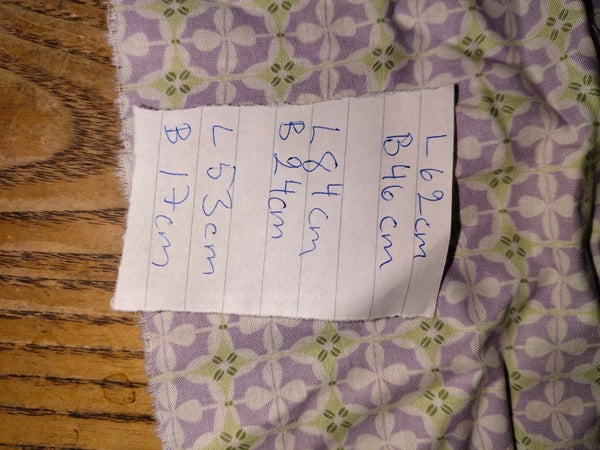 L 62cm
B 46 cm
L 84 cm
B 24cm
L 53cm
B 17cm